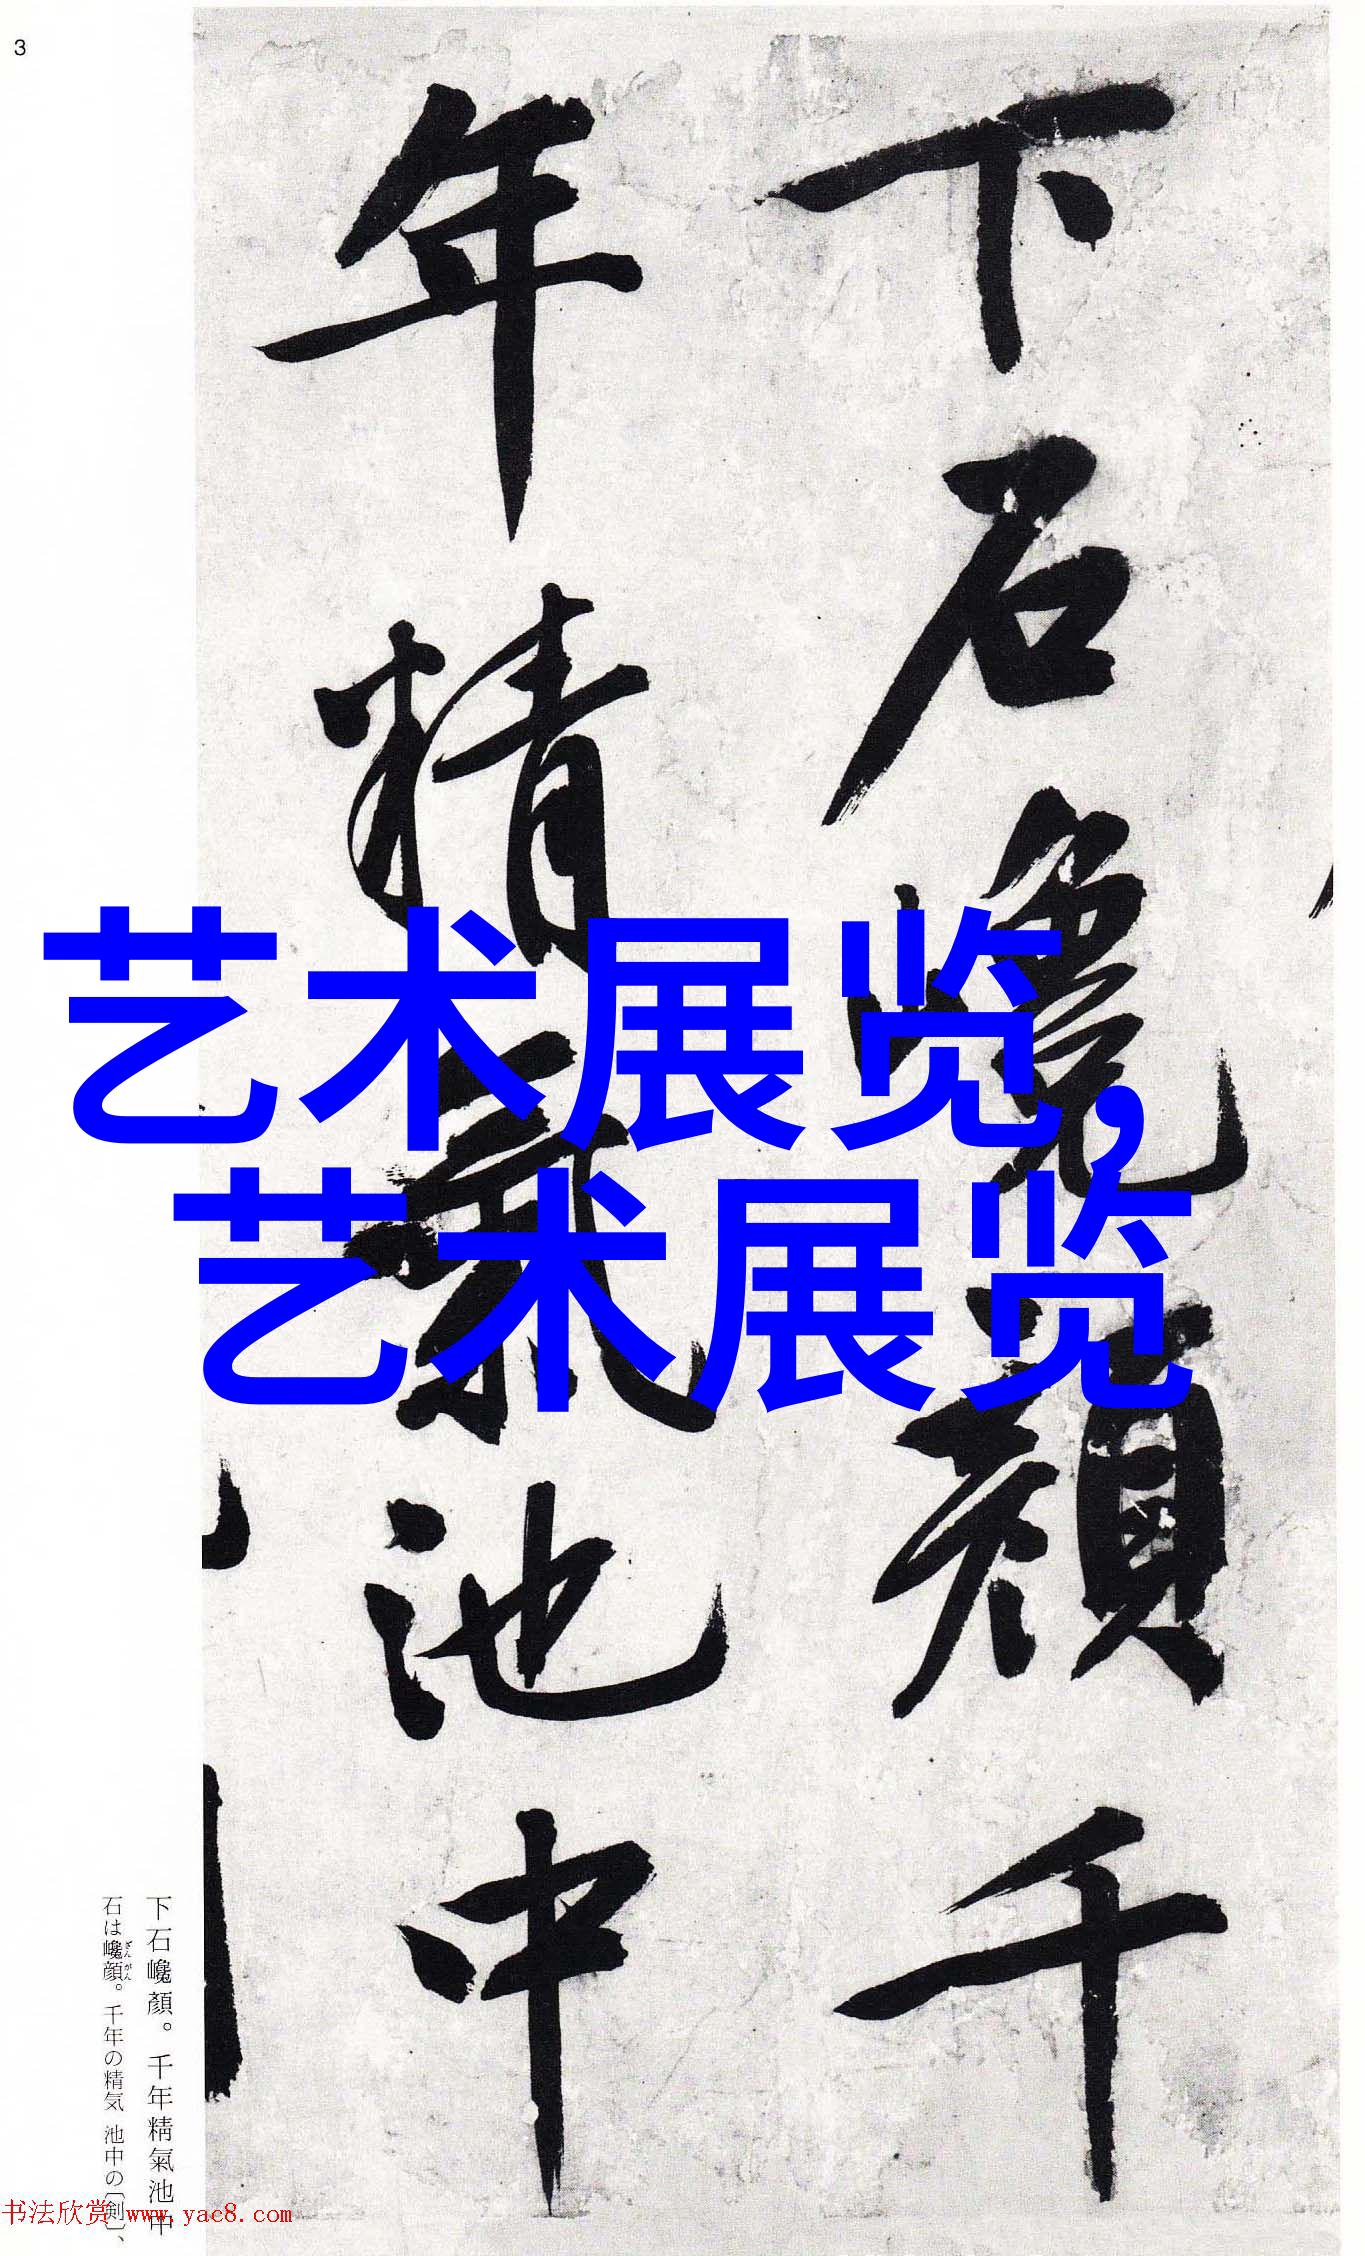 3
下石巉顏千
年精氣池中
艺术展览,
艺术展览
下石巉顏。千年精氣池中
石は巉顔。千年の精気 池中の〔剣〕、
ざん がん
书法欣赏 www.yac8.com